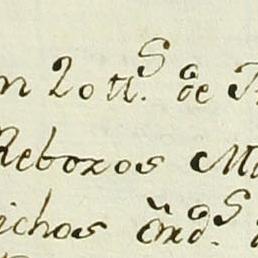 n 20 tt.S de
Rebozos M
ichos Ord.S